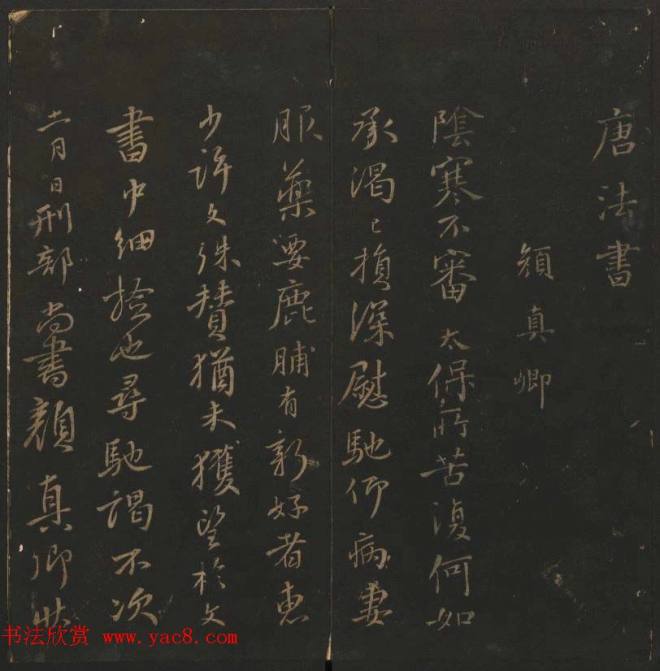 唐法書
顏真卿
陰寒不審太保所苦復何如
承渴已損深慰馳仰病妻
服藥要鹿脯有新好者惠
少許文殊賛猶未獲望於文
書中細撿也尋馳謁不次
十一月日刑部尚書顏真卿狀
书法欣赏 www.yac8.com